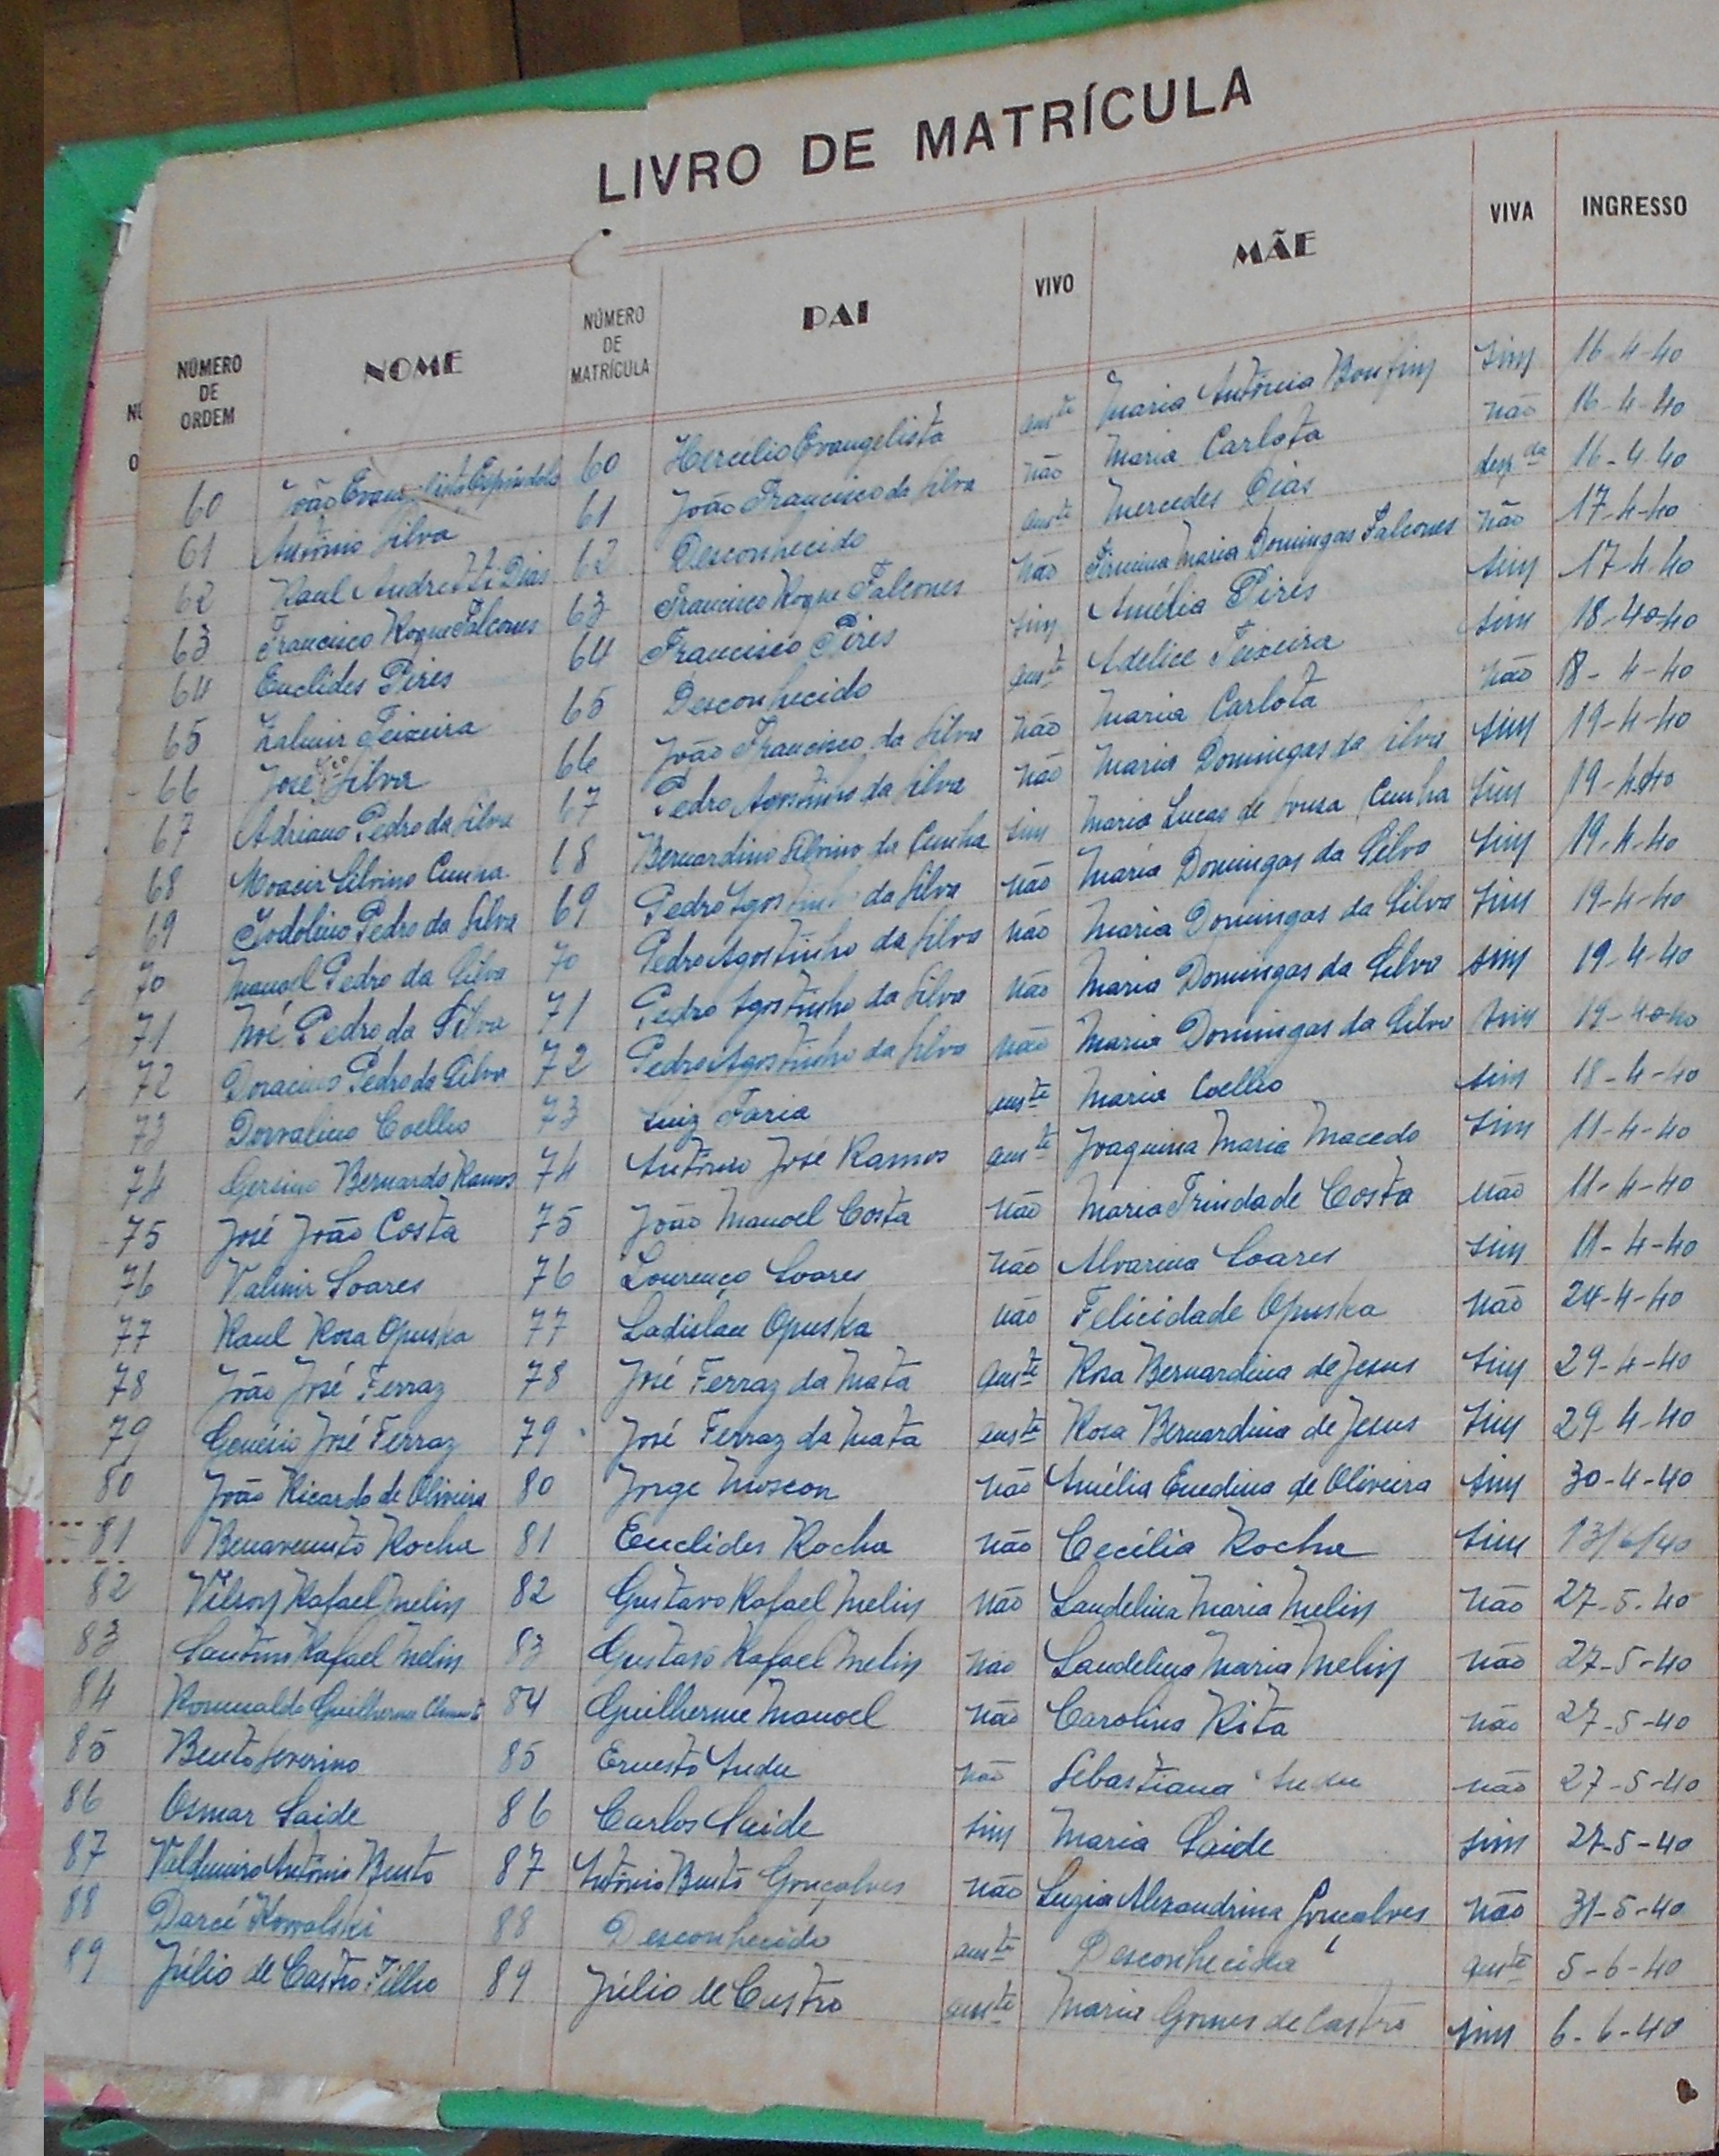 LIVRO DE MATRÍCULA
NÚMERO DE ORDEM NOME NÚMERO DE MATRÍCULA PAI VIVO MÃE VIVA INGRESSO
60 João Evangelista Espíndola 60 Hercílio Evangelista auste Maria Antônia Bonfim sim 16-4-40
61 Antônio Silva 61 João Francisco da Silva não Maria Carlota não 16-4-40
62 Raul Andreatti Dias 62 Desconhecido auste Mercedes Dias desp da 16-4-40
63 Francisco Roque Falcones 63 Francisco Roque Falcones não Firmina Maria Domingas Falcones não 17-4-40
64 Euclides Pires 64 Francisco Pires sim Amélia Pires sim 17-4-40
65 Zalmir Teixeira 65 Desconhecido auste Adelice Teixeira sim 18-4-40
66 José Silva 66 João Francisco da Silva não Maria Carlota não 18-4-40
67 Adriano Pedro da Silva 67 Pedro Agostinho da Silva não Maria Domingas da Silva sim 19-4-40
68 Moacir Silvino Cunha 68 Bernardino Silvino da Cunha sim Maria Lucas de Souza Cunha sim 19-4-40
69 Jodolino Pedro da Silva 69 Pedro Agostinho da Silva não Maria Domingas da Silva sim 19-4-40
70 Manoel Pedro da Silva 70 Pedro Agostinho da Silva não Maria Domingas da Silva sim 19-4-40
71 Noé Pedro da Silva 71 Pedro Agostinho da Silva não Maria Domingas da Silva sim 19-4-40
72 Doracino Pedro da Silva 72 Pedro Agostinho da Silva não Maria Domingas da Silva sim 19-4-40
73 Dorvalino Coelho 73 Luiz Faria auste Maria Coelho sim 18-4-40
74 Gersino Bernardo Ramos 74 Antônio José Ramos auste Joaquina Maria Macedo sim 11-4-40
75 José João Costa 75 João Manoel Costa não Maria Trindade Costa não 11-4-40
76 Valmir Soares 76 Lourenço Soares não Alvarina Soares sim 11-4-40
77 Raul Rosa Opuska 77 Ladislau Opuska não Felicidade Opuska não 24-4-40
78 João José Ferraz 78 José Ferraz da Mata auste Rosa Bernardina de Jesus sim 29-4-40
79 Genésio José Ferraz 79 José Ferraz da Mata auste Rosa Bernardina de Jesus sim 29-4-40
80 João Ricardo de Oliveira 80 Jorge Moscon não Amélia Enedina de Oliveira sim 30-4-40
81 Benavenuto Rocha 81 Euclides Rocha não Cecília Rocha sim 13/6/40
82 Vilson Rafael Melin 82 Gustavo Rafael Melin não Laudelina Maria Melin não 27-5-40
83 Santino Rafael Melin 83 Gustavo Rafael Melin não Laudelina Maria Melin não 27-5-40
84 Romualdo Guilherme 84 Guilherme Manoel não Carolina Rita não 27-5-40
85 Bento Severino 85 Ernesto não Sebastiana não 27-5-40
86 Osmar Saide 86 Carlos Saide sim Maria Saide sim 27-5-40
87 Valdemiro Antônio Bento 87 Antônio Bento Gonçalves não Luzia Alexandrina Gonçalves não 31-5-40
88 Darcí Kowalski 88 Desconhecido auste Desconhecida auste 5-6-40
89 Júlio de Castro Filho 89 Júlio de Castro auste Maria Gomes de Castro sim 6-6-40